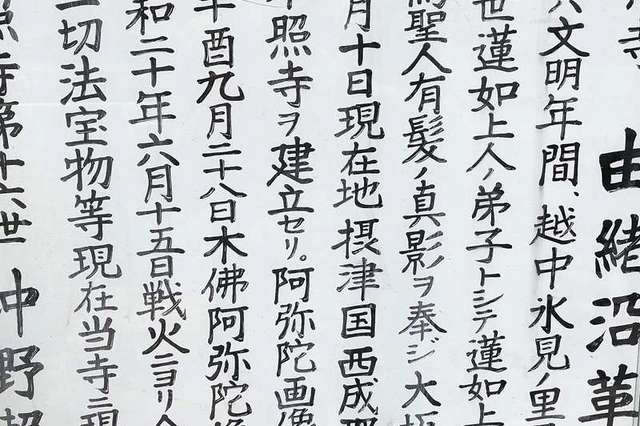 寺
由緒沿革
文明年間、越中氷見ノ里
世蓮如上人ノ弟子トシテ蓮如上
聖人有髪ノ真影ヲ奉ジ大
月十日現在地摂津国西成
照寺ヲ建立セリ。阿弥陀画像
酉九月二十八日木佛阿弥陀
和二十年六月十五日戦火ニヨリ
一切法宝物等現在当寺ニ現
照寺第十六世 中野